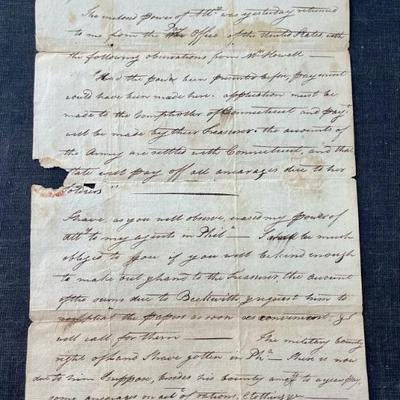 The inclosed power of Att.y was yesterday returned
to me from the Office of the United States with
the following observations from Mr Howell —
"Had the power been presented before, payment
could have been made here. application must be
made to the Comptroller of Connecticut and pay.t
will be made by their Treasurer. the accounts of
the Army are settled with Connecticut, and that
State will pay off all arrearages due to her
Soldiers"
I have as you will observe, erased my power of
Att.y to my agents in Phil.a — I shall be much
obliged to you if you will be kind enough
to make out & hand to the Treasurer the account
of the sums due to Beckwith, & request him to
the papers as soon as convenient, &
will call for them — The military bounty
right of land I have gotten in Ph.a — there is now
due to him I suppose, besides his bounty a years pay,
some arrearages on acc.t of rations, Clothing &c